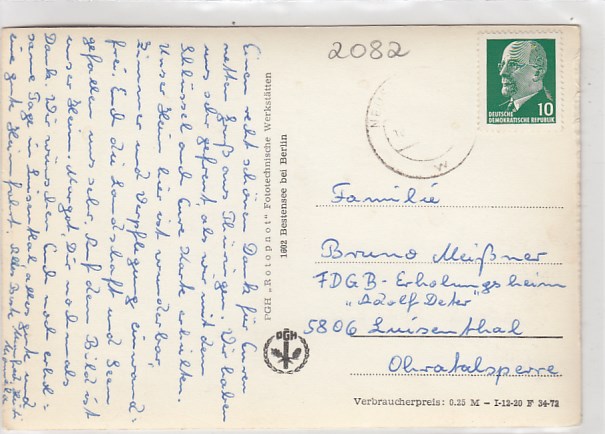 Einen recht schönen Dank für Euren
netten Gruß aus Thüringen. Wir haben
uns sehr gefreut als wir mit dem
Schlüssel auch Eure Karte erhielten.
Unser Heim hier ist wunderbar,
Zimmer und Verpflegung einwand=
frei. Und die Landschaft und Seen
gefallen uns sehr. Auf dem Bild ist
unser Heim. Margot, Dir nochmals
Dank. Wir wünschen Euch noch erhol=
same Tage in Luisenthal alles Gute und
eine gute Heimfahrt. Alles Gute
PGH „Rotophot“ Fototechnische Werkstätten
1602 Bestensee bei Berlin
2082
10
DEUTSCHE
DEMOKRATISCHE REPUBLIK
W
Familie
Bruno Meißner
FDGB-Erholungsheim
„Adolf Deter“
5806 Luisenthal
Ohratalsperre
PGH
Verbraucherpreis: 0.25 M - I-12-20 F 34-72